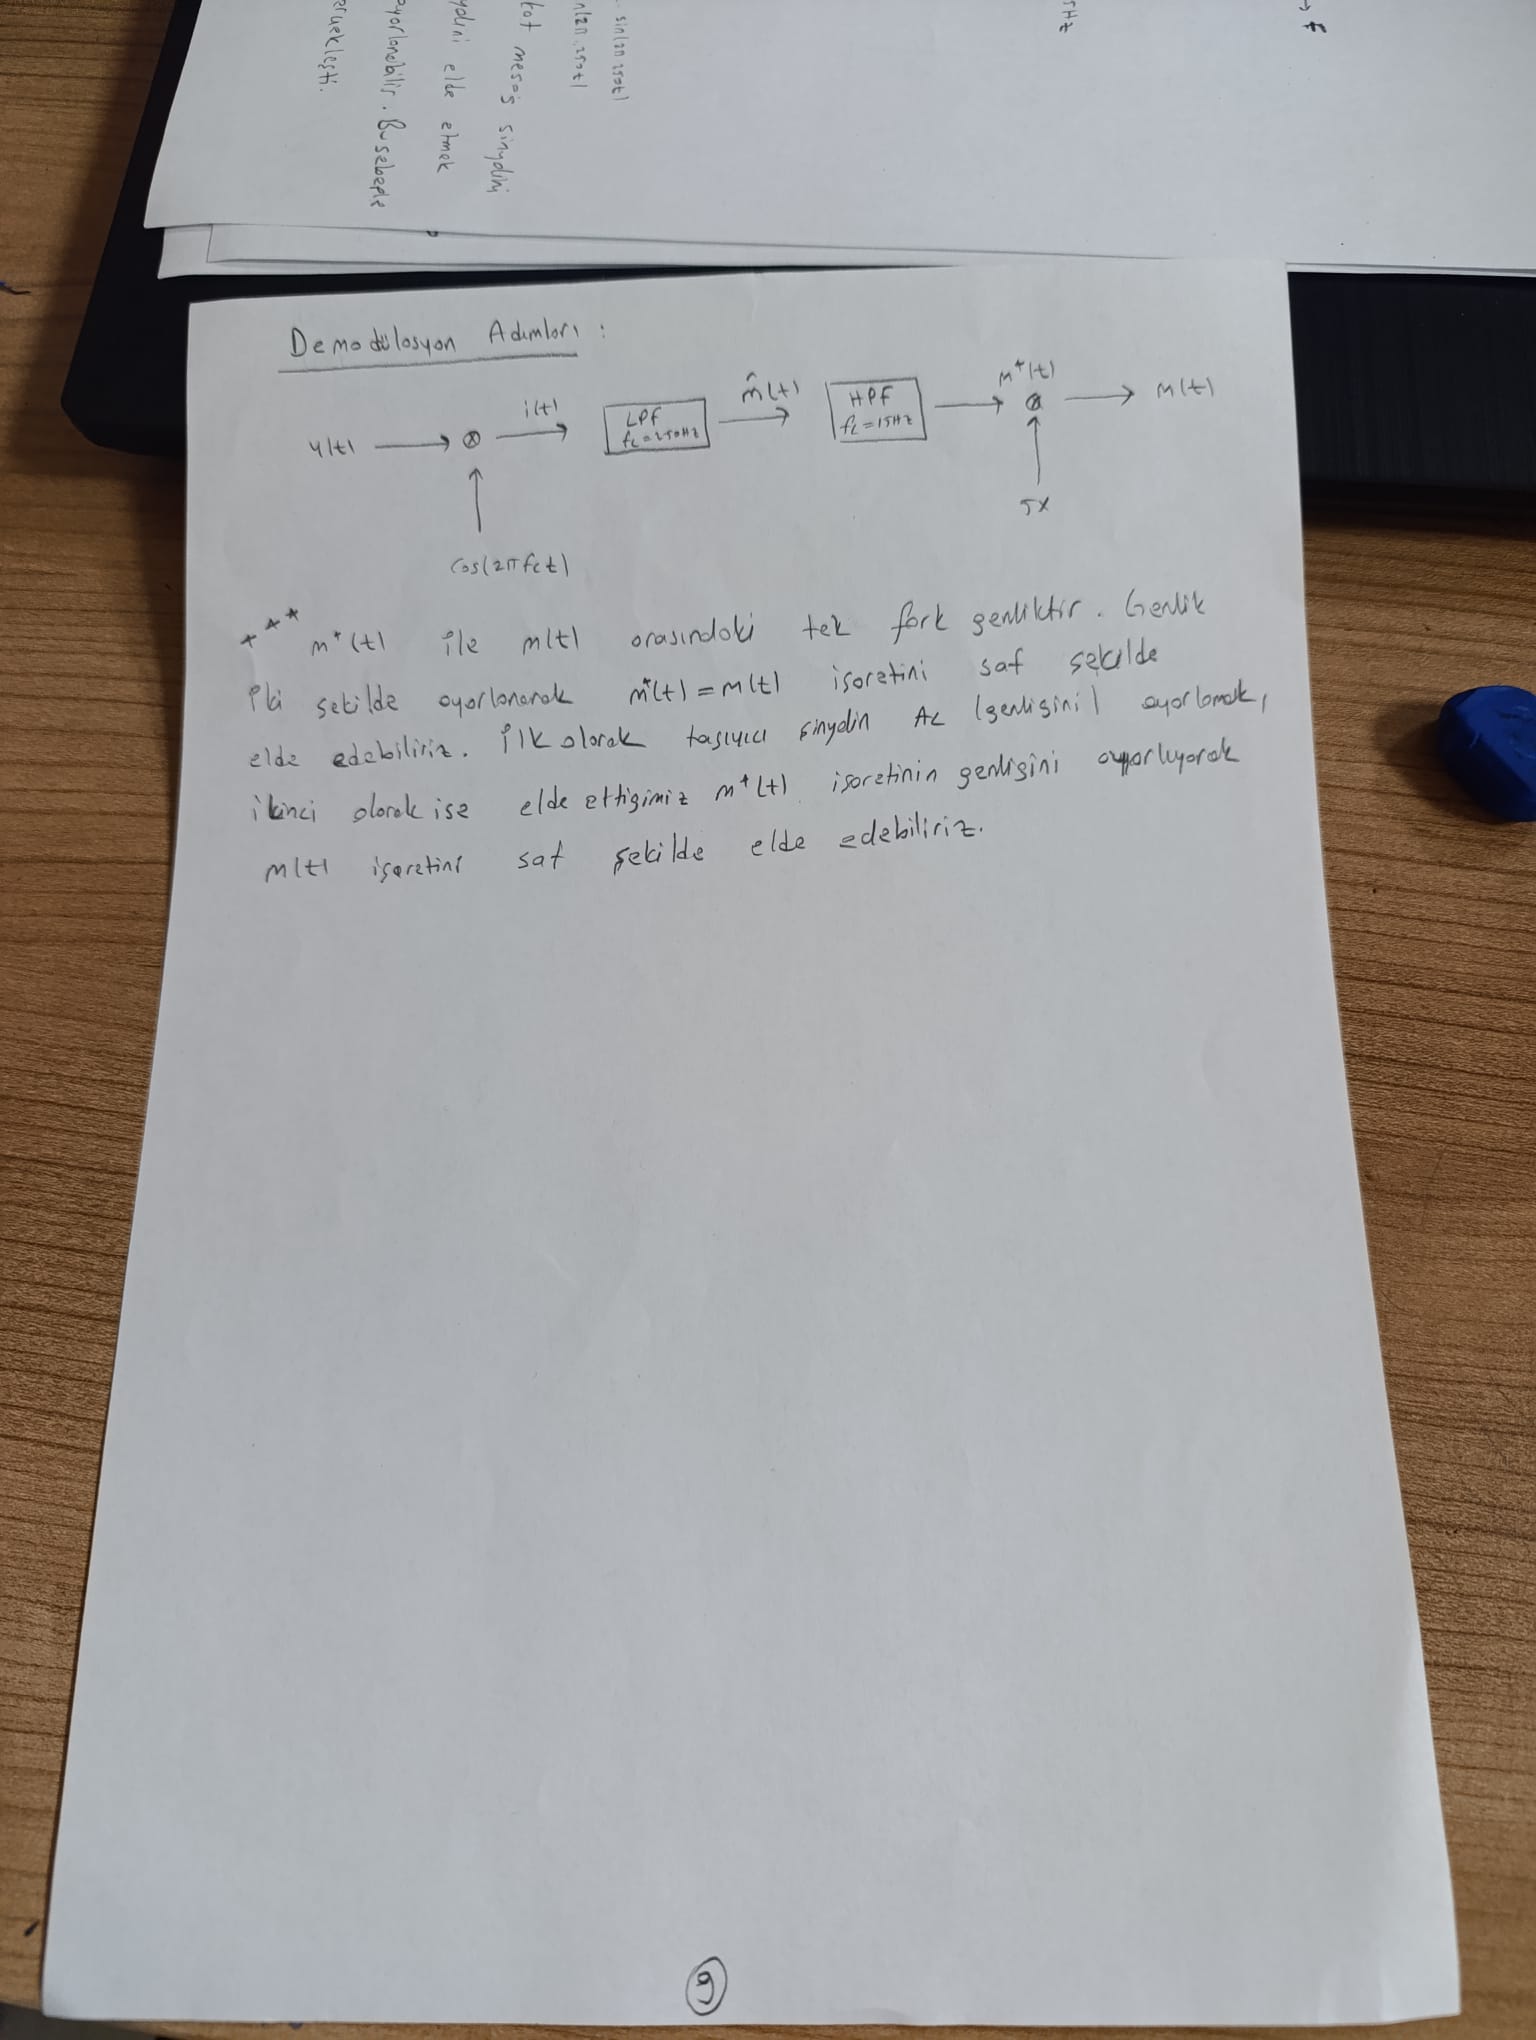 sin(2π 250t)
n(2π.250t)
kot mesaj sinyalini
yalini elde etmek
ayarlanabilir. Bu sebeple
5Hz
→ f
Demodülasyon Adımları :
y(t) → ⊗ i(t) → LPF fc=250Hz m̂(t) → HPF fc=15Hz → m*(t) ⊗ → m(t)
cos(2πfct)
5x
*** m*(t) ile m(t) arasındaki tek fark genliktir. Genlik
iki şekilde ayarlanarak m*(t) = m(t) işaretini saf şekilde
elde edebiliriz. İlk olarak taşıyıcı sinyalin Ac (genliğini) ayarlamak,
ikinci olarak ise elde ettiğimiz m*(t) işaretinin genliğini ayarlıyarak
m(t) işaretini saf şekilde elde edebiliriz.
9